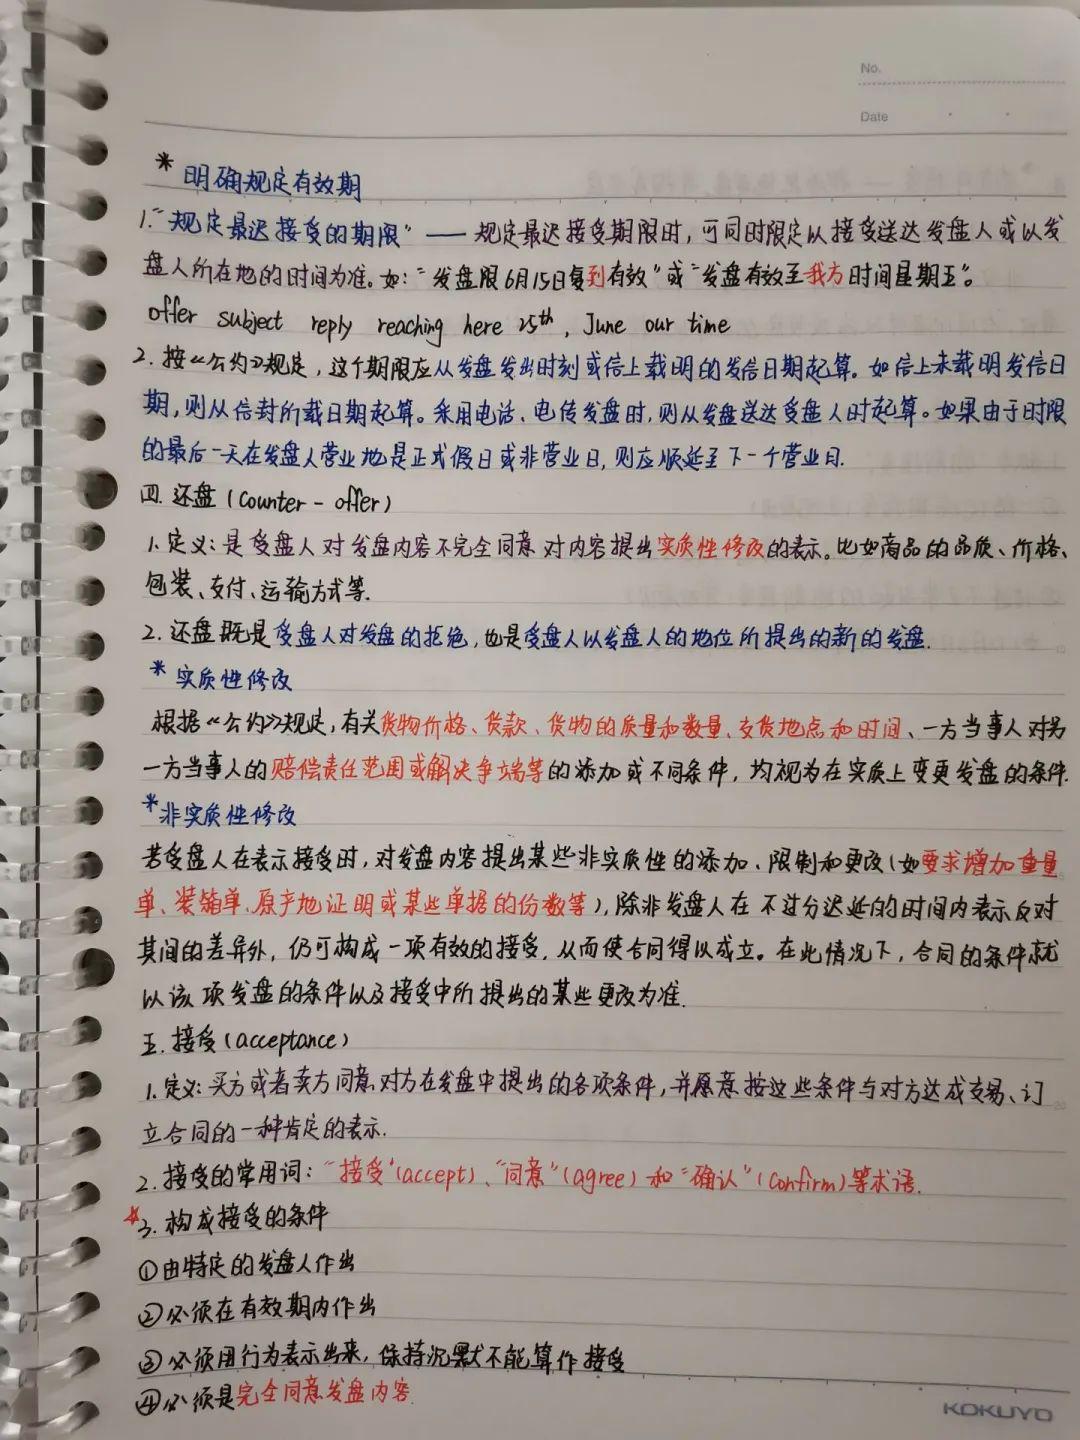 No.
Date
* 明确规定有效期
1."规定最迟接受的期限"——规定最迟接受期限时,可同时限定以接受送达发盘人或以发
盘人所在地的时间为准。如:"发盘限6月15日复到有效"或"发盘有效至我方时间星期五"。
offer subject reply reaching here 25th, June our time
2. 按《公约》规定,这个期限应从发盘发出时刻或信上载明的发信日期起算。如信上未载明发信日
期,则从信封所载日期起算。采用电话、电传发盘时,则从发盘送达受盘人时起算。如果由于时限
的最后一天在发盘人营业地是正式假日或非营业日,则应顺延至下一个营业日.
四.还盘(Counter-offer)
1.定义:是受盘人对发盘内容不完全同意对内容提出实质性修改的表示。比如商品的品质、价格、
包装、支付、运输方式等.
2.还盘既是受盘人对发盘的拒绝,也是受盘人以发盘人的地位所提出的新的发盘.
* 实质性修改
根据《公约》规定,有关货物价格、货款、货物的质量和数量、交货地点和时间、一方当事人对另
一方当事人的赔偿责任范围或解决争端等的添加或不同条件,均视为在实质上变更发盘的条件.
*非实质性修改
若受盘人在表示接受时,对发盘内容提出某些非实质性的添加、限制和更改(如要求增加重量
单、装箱单、原产地证明或某些单据的份数等),除非发盘人在不过分迟延的时间内表示反对
其间的差异外,仍可构成一项有效的接受,从而使合同得以成立。在此情况下,合同的条件就
以该项发盘的条件以及接受中所提出的某些更改为准.
五.接受(acceptance)
1.定义:买方或者卖方同意对方在发盘中提出的各项条件,并愿意按这些条件与对方达成交易、订
立合同的一种肯定的表示.
2.接受的常用词:"接受"(accept)、"同意"(agree)和"确认"(Confirm)等术语.
*3.构成接受的条件
①由特定的发盘人作出
②必须在有效期内作出
③必须用行为表示出来,保持沉默不能算作接受
④必须是完全同意发盘内容
KOKUYO